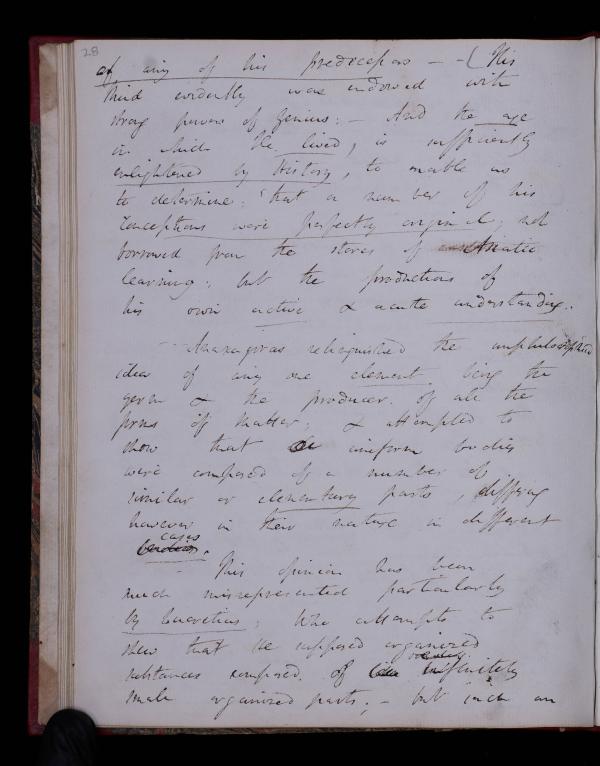 28
of any of his predecessors — – (His
mind evidently was endowed with
strong powers of Genius: – And the age
in which He lived, is sufficiently
enlightened by History, to enable us
to determine; that a number of his
Conceptions were perfectly original; not
borrowed from the stores of Asiatic
learning; but the productions of
his own active & acute understanding.
Anaxagoras relinquished the unphilosophical
idea of any one element being the
germ & the producer of all the
forms of Matter; & attempted to
show that all uniform bodies
were composed of a number of
similar or elementary parts, differing
however in their nature in different
cases
bodies.
This opinion has been
much misrepresented particularly
by Lucretius; Who attempts to
shew that He supposed organized
substances composed of infinitely
small organized parts; – but such an